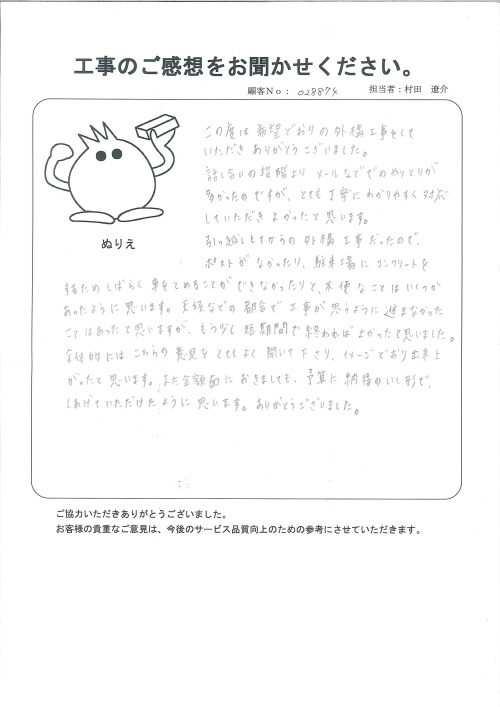 工事のご感想をお聞かせください。
顧客No: 028874 担当者:村田 遼介
この度は希望どおりの外構工事をして
いただきありがとうございました。
話し合いの段階より メールなどでのやりとりが
多かったのですが、とても丁寧にわかりやすく対応
していただきよかったと思います。
引っ越してからの外構工事だったので、
ポストがなかったり、駐車場にコンクリートを
ぬりえ
するためしばらく車をとめることができなかったりと、不便なことはいくつか
あったように思います。天候などの都合で工事が思うように進まなかった
ことはあったと思いますが、もう少し短期間で終われば上かったと思いました。
全体的にはこちらの意見をとてもよく聞いて下さり、イメージどおり出来上
がったと思います。また金額面におきましても、予算に納得のいく形で、
しあげていただけたように思います。ありがとうございました。
ご協力いただきありがとうございました。
お客様の貴重なご意見は、今後のサービス品質向上のための参考にさせていただきます。